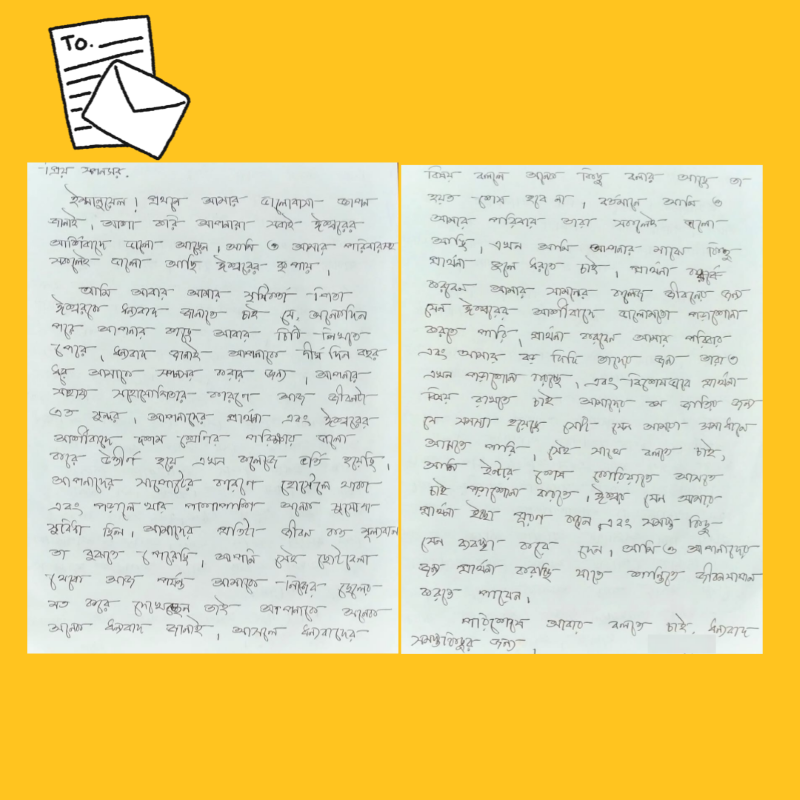 To.
প্রিয় স্পনসর.
ইম্মানুয়েল! প্রথমে আমার ভালোবাসা জ্ঞাপন
জানাই, আশা করি আপনারা সবাই ঈশ্বরের
আর্শিবাদে ভালো আছেন, আমি ও আমার পরিবারসহ
সকলেই ভালো আছি ঈশ্বরের কৃপায়,
আমি আবার আমার সৃষ্টিকর্তা পিতা
ঈশ্বরকে ধন্যবাদ জানাতে চাই যে, অনেকদিন
পরে আপনার কাছে আবার চিঠি লিখতে
পেরে, ধন্যবাদ জানাই আপনাকে দীর্ঘ দিন বছর
ধরে আমাকে স্পনসর করার জন্য, আপনার
সাহায্য সহযোগিতার কারণে আজ জীবনটা
এত সুন্দর, আপনাদের প্রার্থনা এবং ঈশ্বরের
আর্শীবাদে দশম শ্রেণির পরিক্ষায় ভালো
করে উত্তীর্ণ হয়ে এখন কলেজে ভর্তি হয়েছি,
আপনাদের সাপোর্টের কারণে হোস্টেলে থাকা
এবং পড়ালেখার পাশাপাশি অনেক সুযোগ
সুবিধা ছিল, আমাদের প্রতিটা জীবন কত মূল্যবান
তা বুঝতে পেরেছি, আপনি সেই ছোটবেলা
থেকে আজ পর্যন্ত আমাকে নিজের ছেলের
মত করে দেখেছেন তাই আপনাকে অনেক
অনেক ধন্যবাদ জানাই, আসলে ধন্যবাদের
বিষয় বললে অনেক কিছু বলার আছে তা
হয়ত শেষ হবে না, বর্তমানে আমি ও
আমার পরিবার তারা সকলেই ভালো
আছি, এখন আমি আপনার মাঝে কিছু
প্রার্থনা তুলে ধরতে চাই, প্রার্থনা
করবেন আমার সামনের কলেজ জীবনের জন্য
যেন ঈশ্বরের আর্শীবাদে ভালোমতো পড়াশোনা
করতে পারি, প্রার্থনা করবেন আমার পরিবার
এবং আমার বড় দিদি তাদের জন্য তারাও
এখন পড়াশোনা করছে, এবং বিশেষভাবে প্রার্থনা
বিষয় রাখতে চাই আমাদের জাতির জন্য
যে সমস্যা হয়েছে সেটা যেন আমরা সমাধানে
আসতে পারি, সেই সাথে বলতে চাই,
আমি ইন্টারে শেষে কোরিয়াতে আসতে
চাই পড়াশোনা করতে, ঈশ্বর যেন আমার
প্রার্থনা ইচ্ছা পূরণ করেন, এবং সমস্ত কিছু
যেন ব্যবস্থা করে দেন, আমি ও আপনাদের
জন্য প্রার্থনা করছি যাতে শান্তিতে জীবনযাপন
করতে পারেন,
পরিশেষে আবার বলতে চাই. ধন্যবাদ
সমস্তকিছুর জন্য,